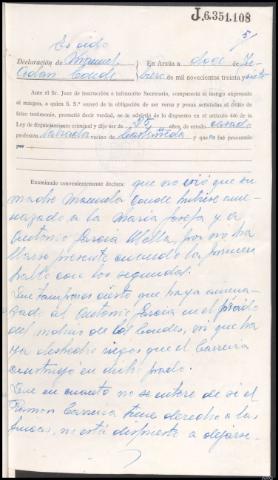 J.6.351.108
5
Declaración de Manuel
En Arzúa a doce de
de mil novecientos treinta
Ante el Sr. Juez de instrucción e infrascrito Secretario, compareció el testigo expresado
al margen, a quien S. S.ª enteró de la obligación de ser veraz y penas señaladas al delito de
falso testimonio, prometió decir verdad, se le advirtió de lo dispuesto en el artículo 446 de la
Ley de Enjuiciamiento criminal y dijo ser de 35 años, de estado casado
profesión labrador vecino de y que fue procesado
por
Examinado convenientemente declara: que no oyó que su
madre Manuela Conde hubiese ame-
nazado a la María Josefa y a
Antonio García Mella, por no ha-
llarse presente cuando la primera
habló con los segundos.
Que tampoco es cierto que haya amena-
zado al Antonio García en el
del molino de los Condes, ni que ha-
ya deshecho riegos que el Carreira
construyó en dicho prado.
Que en cuanto no se entere de si el
Ramón Carreira tiene derecho a las
fincas, no está dispuesto a dejarse-